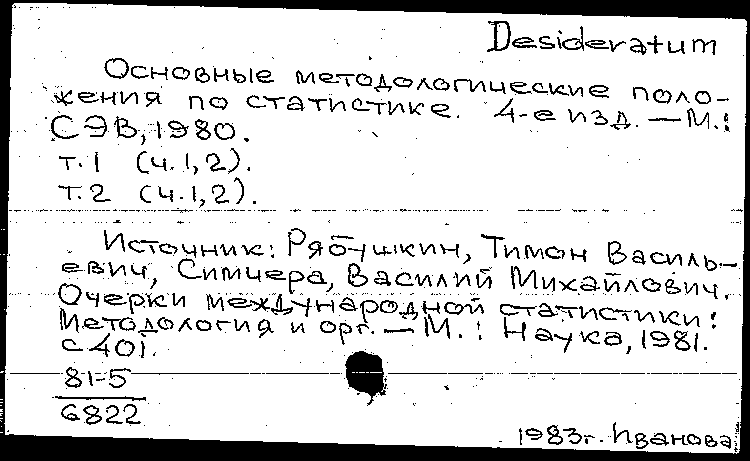 Desideratum
Основные методологические поло-
жения по статистике. 4-е изд. — М.:
СЭВ, 1980.
т.1 (ч.1,2).
т.2 (ч.1,2).
Источник: Рябушкин, Тимон Василь-
евич, Симчера, Василий Михайлович.
Очерки международной статистики:
Методология и орг. — М.: Наука, 1981.
с 401.
81-5
6822
1983г. Иванова